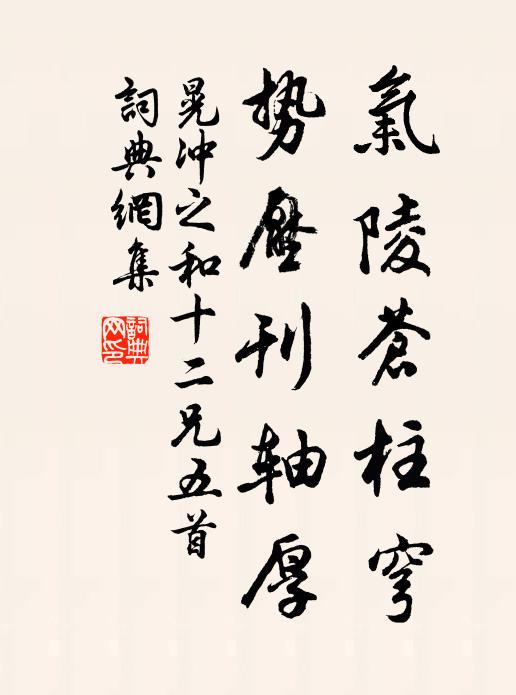 氣陵蒼柱穹
势壓刊轴厚
晁冲之和十二兄五首
詞典網集
詞典網印